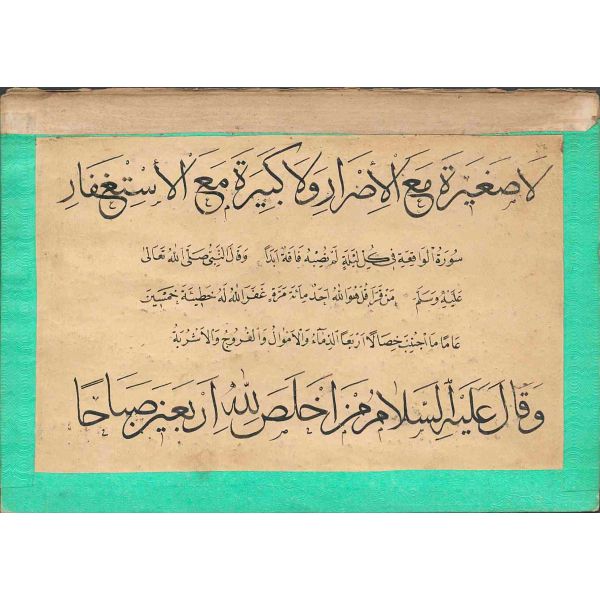 لا صغيرة مع الأضرار ولا كبيرة مع الأستغفار
سورة الواقعة في كل ليلة لم يصبه فاقة ابدا وقال النبي صلى الله تعالى
عليه وسلم من قرأ قل هو الله احد مائة مرة غفر الله له خطيئة خمسين
عاما ما اجتنب خصالا اربعا الدماء والاموال والفروج والاشربة
وقال عليه السلام من اخلص لله اربعين صباحا